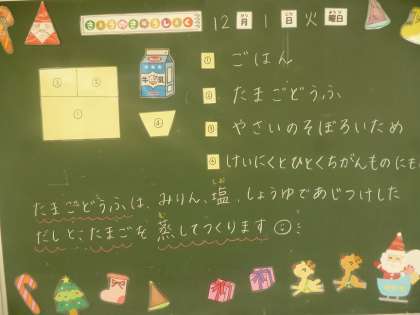 きょうのきゅうしょく
12月1日火曜日
牛乳
① ごはん
② たまごどうふ
③ やさいのそぼろいため
④ けいにくとひとくちがんものにも
たまごどうふは、みりん、塩、しょうゆであじつけした
だしと、たまごを蒸してつくります